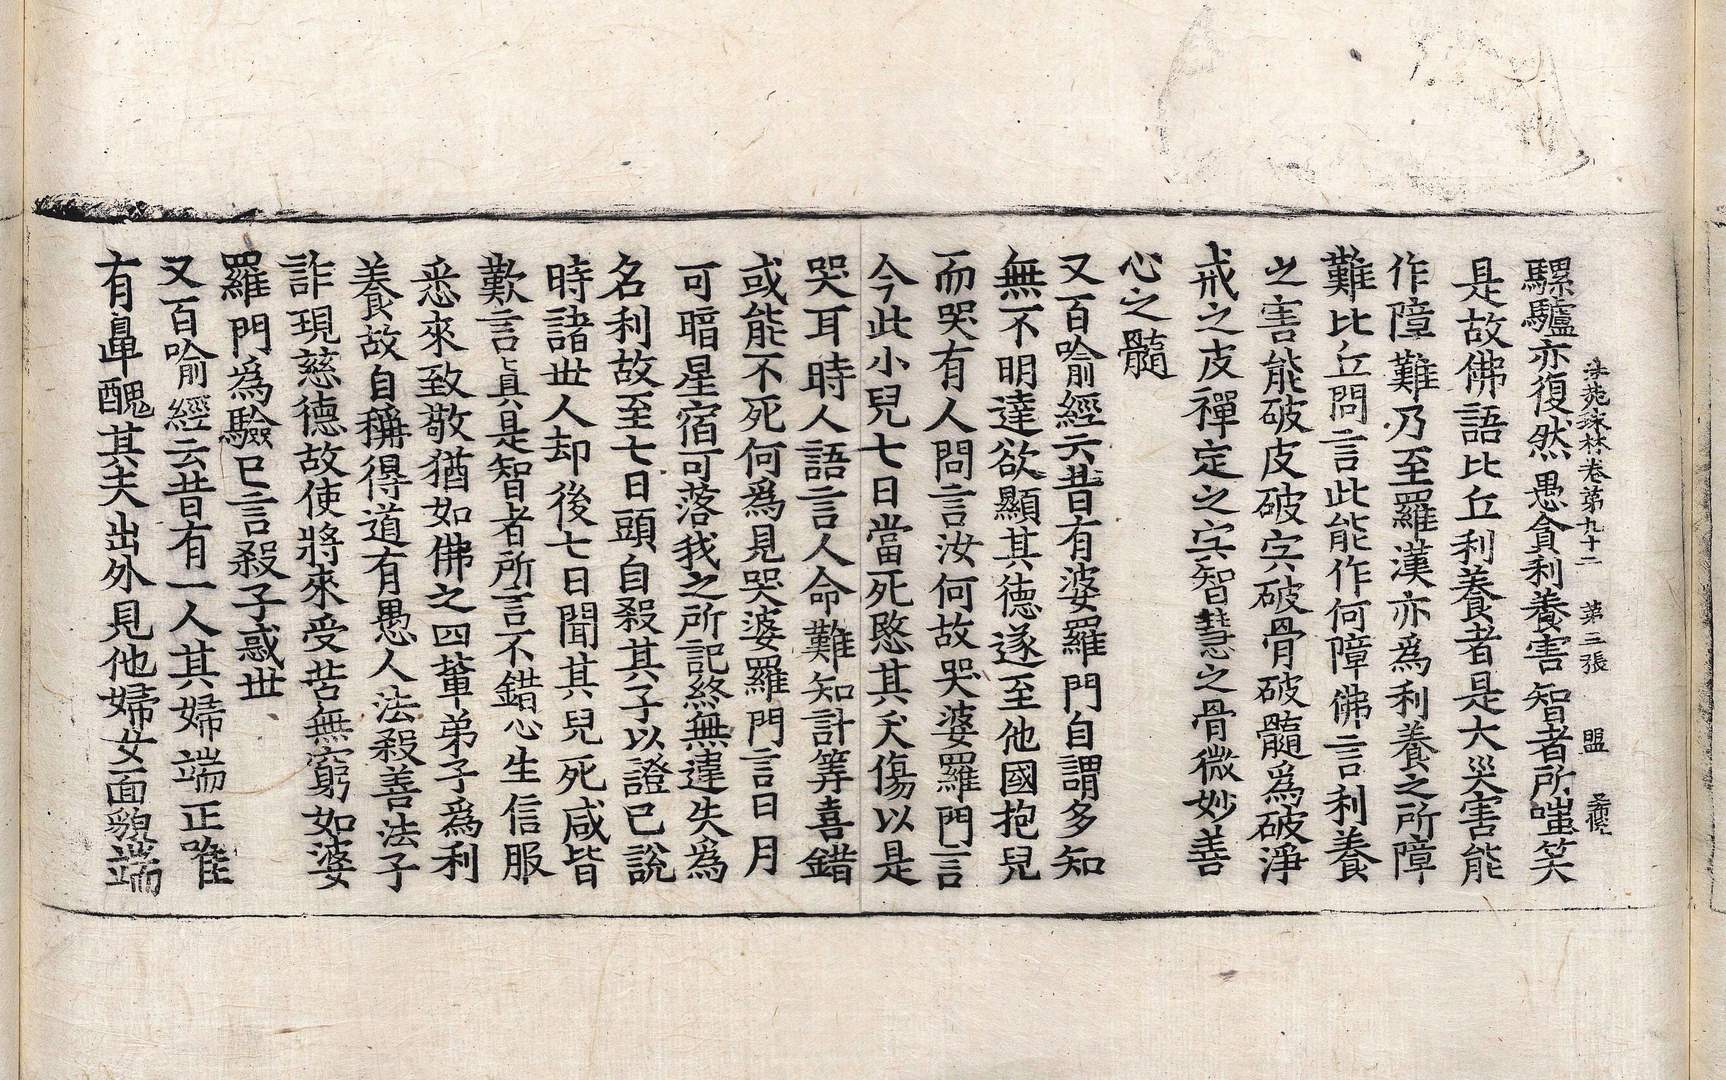 法苑珠林卷第九十二　第三張　盟
騾驢亦復然愚貪利養害智者所嗤笑
是故佛語比丘利養者是大災害能
作障難乃至羅漢亦為利養之所障
難比丘問言此能作何障佛言利養
之害能破皮破宍破骨破髓為破淨
戒之皮禪定之宍智慧之骨微妙善
心之髓
又百喻經云昔有婆羅門自謂多知
無不明達欲顯其德遂至他國抱兒
而哭有人問言汝何故哭婆羅門言
今此小兒七日當死愍其夭傷以是
哭耳時人語言人命難知計筭喜錯
或能不死何為見哭婆羅門言日月
可暗星宿可落我之所記終無違失為
名利故至七日頭自殺其子以證已說
時諸世人却後七日聞其兒死咸皆
歎言真是智者所言不錯心生信服
悉來致敬猶如佛之四輩弟子為利
養故自稱得道有愚人法殺善法子
詐現慈德故使將來受苦無窮如婆
羅門為驗已言殺子惑世
又百喻經云昔有一人其婦端正唯
有鼻醜其夫出外見他婦女面貌端